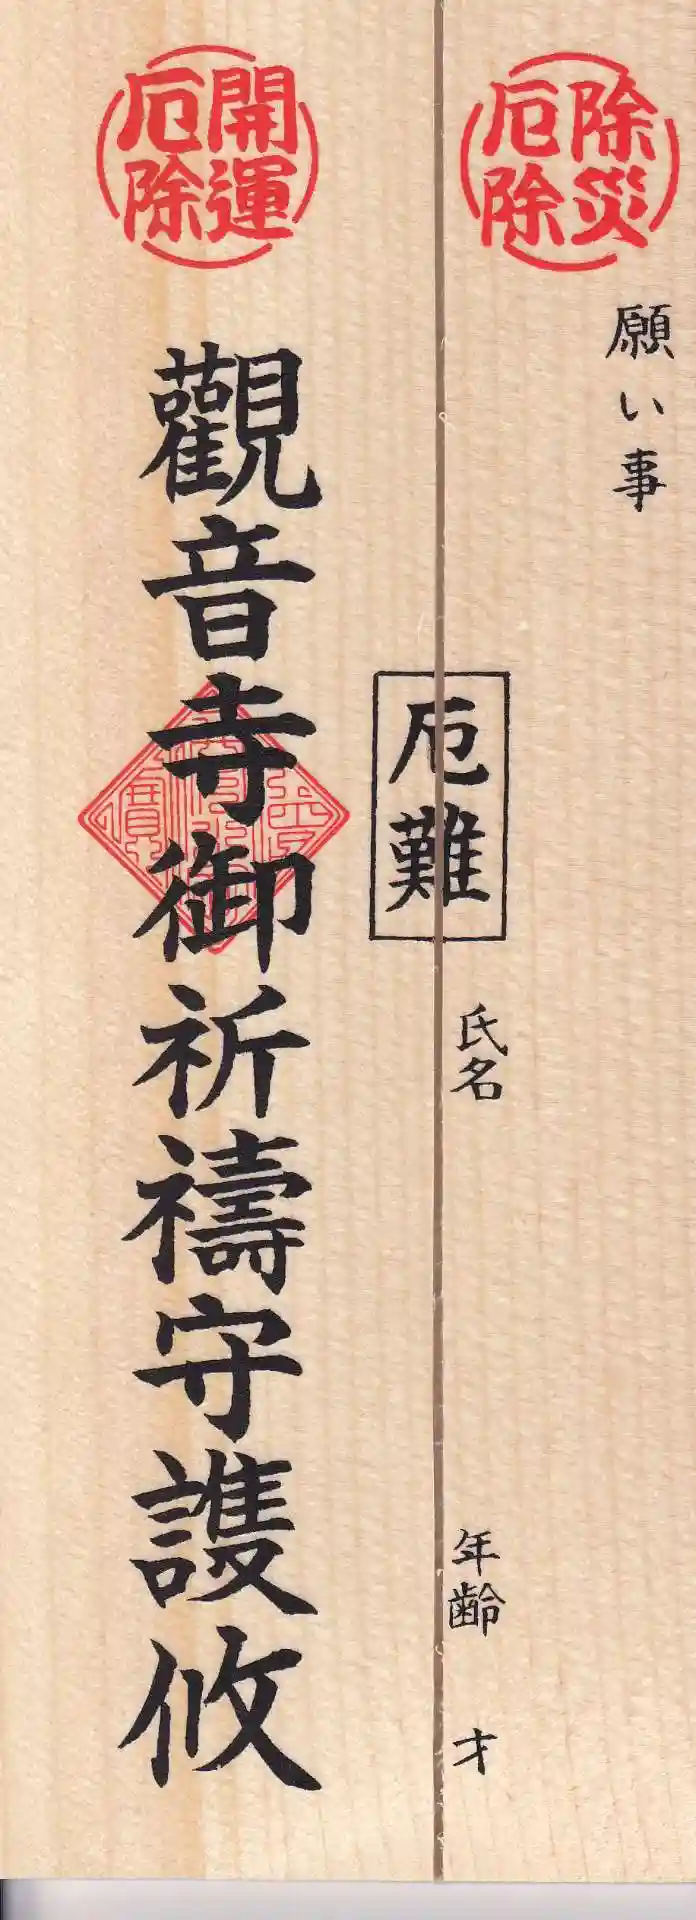 除災
厄除
願い事
厄難
氏名
年齢 才
開運
厄除
觀音寺御祈禱守謢攸